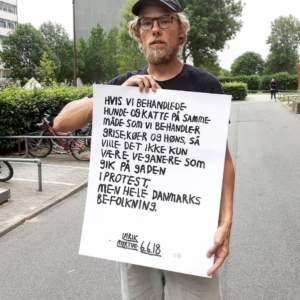 HVIS VI BEHANDLEDE
HUNDE OG KATTE PÅ SAMME
MÅDE SOM VI BEHANDLER
GRISE, KØER OG HØNS, SÅ
VILLE DET IKKE KUN
VÆRE VEGANERE SOM
GIK PÅ GADEN
I PROTEST,
MEN HELE DANMARKS
BEFOLKNING.
6.6.18